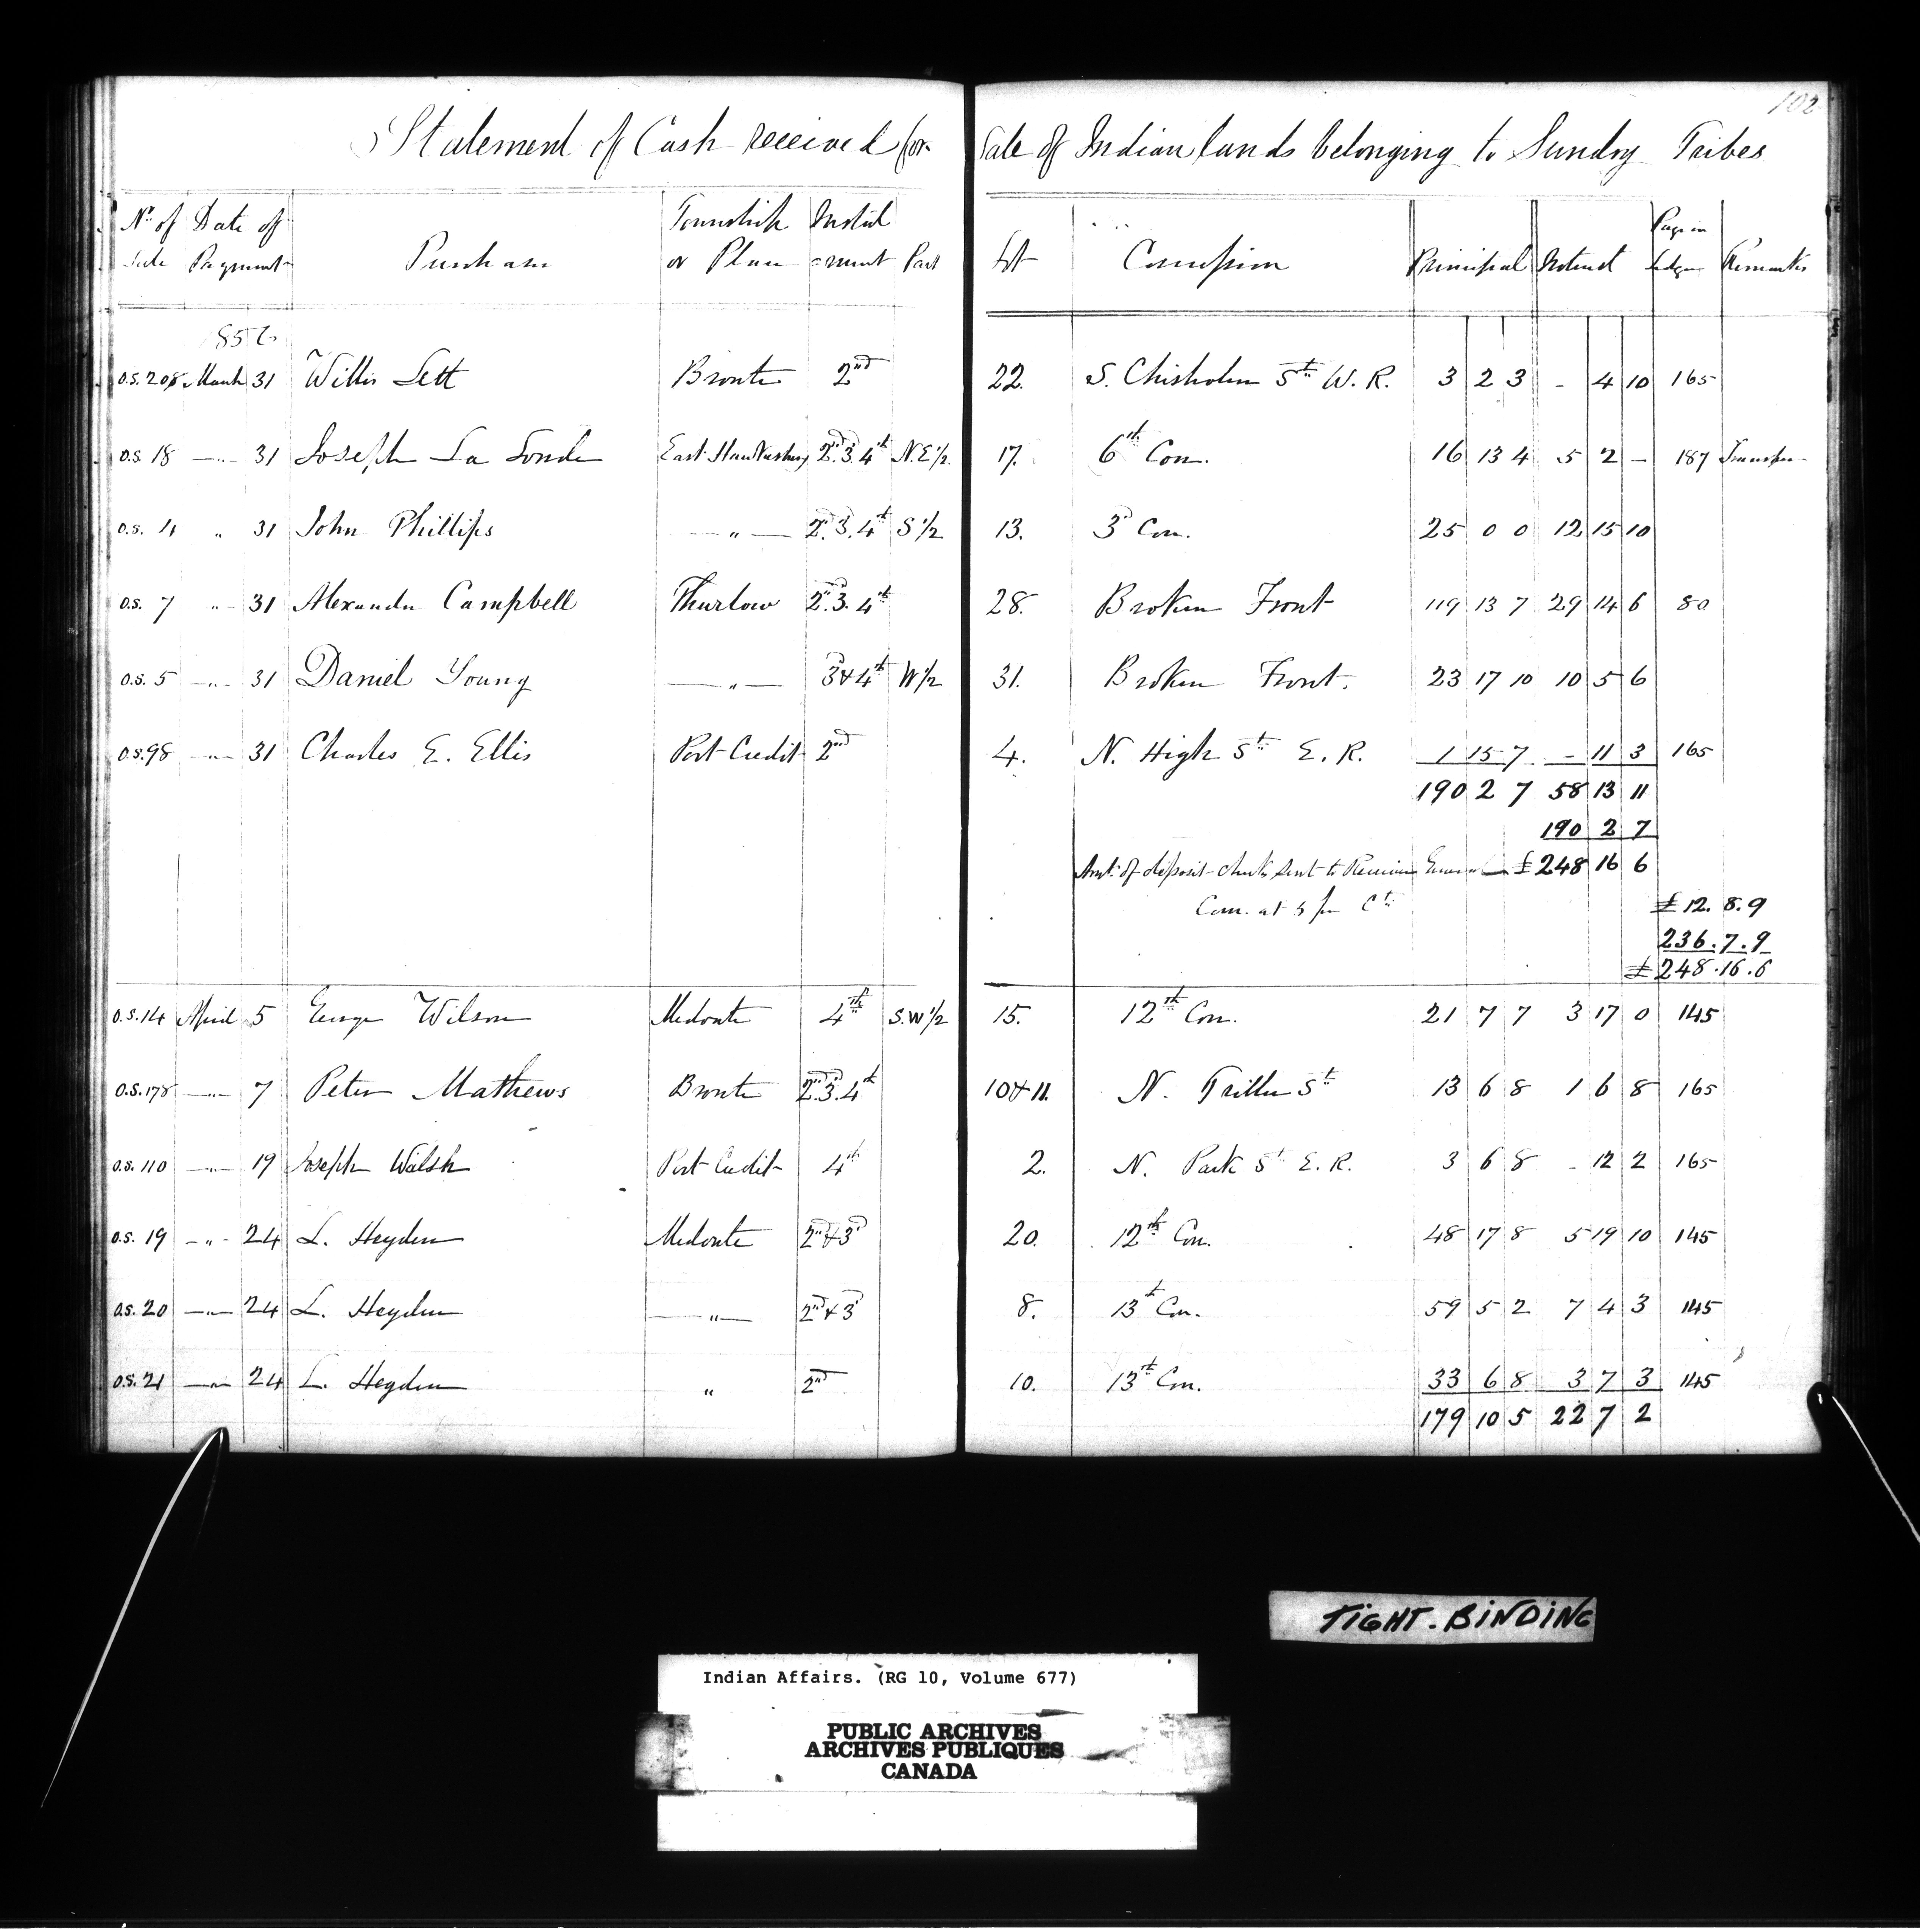 102
Statement of Cash received for Sale of Indian lands belonging to Sundry Tribes
No. of Sale Date of Payment Purchaser Township or Place Instalment Part Lot Concession Principal Interest Page in Ledger Remarks
1856
O.S. 208 March 31 Willis Lett Bronte 2nd 22. S. Chisholm St. W. R. 3 2 3 - 4 10 165
O.S. 18 —"— 31 Joseph La Londe East Hawkesbury 2nd. 3d. 4th N.E 1/2 17. 6th Con. 16 13 4 5 2 — 187 Transfer
O.S. 4 " 31 John Phillips —"— 2nd. 3d. 4th S 1/2 13. 3d Con. 25 0 0 12 15 10
O.S. 7 " 31 Alexander Campbell Thurlow 2nd. 3d. 4th 28. Broken Front 119 13 7 29 14 6 80
O.S. 5 —"— 31 Daniel Young —"— 3d & 4th W 1/2 31. Broken Front. 23 17 10 10 5 6
O.S. 98 —"— 31 Charles E. Ellis Port Credit 2nd 4. N. High St. E. R. 1 15 7 - 11 3 165
190 2 7 58 13 11
190 2 7
Amt. of deposit checks sent to Receiver General £ 248 16 6
Com. at 5 per Ct. £12. 8. 9
236. 7. 9
£248. 16. 6
O.S. 14 April 5 George Wilson Medonte 4th S.W 1/2 15. 12th Con. 21 7 7 3 17 0 145
O.S. 178 —"— 7 Peter Mathews Bronte 2nd. 3d. 4th 10 & 11. N. Triller St. 13 6 8 1 6 8 165
O.S. 110 —"— 19 Joseph Walsh Port Credit 4th 2. N. Park St. E. R. 3 6 8 - 12 2 165
O.S. 19 —"— 24 L. Heyden Medonte 2nd & 3d 20. 12th Con. 48 17 8 5 19 10 145
O.S. 20 —"— 24 L. Heyden —"— 2nd & 3d 8. 13th Con. 59 5 2 7 4 3 145
O.S. 21 —"— 24 L. Heyden " 2nd 10. 13th Con. 33 6 8 3 7 3 145
179 10 5 22 7 2
TIGHT. BINDING
Indian Affairs. (RG 10, Volume 677)
PUBLIC ARCHIVES
ARCHIVES PUBLIQUES
CANADA